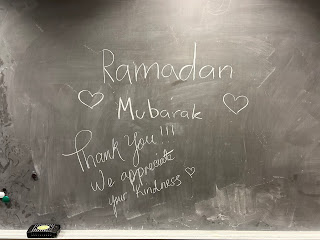 Ramadan
Mubarak
Thank You!!!
We appreciate
your kindness